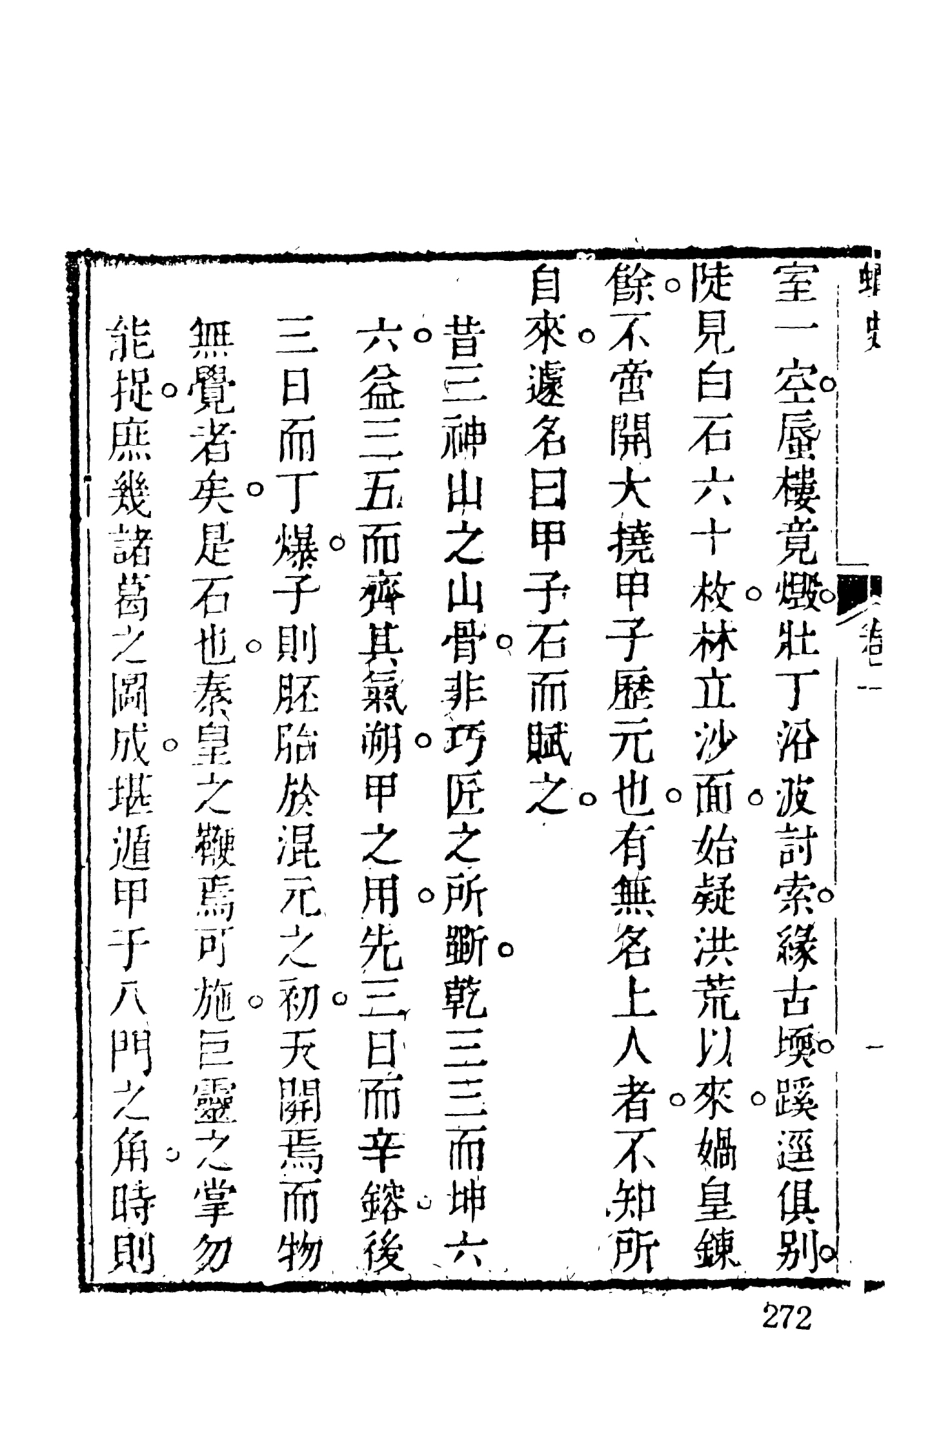 蟫史
卷一
一
室一空。蜃樓竟燬。壯丁沿波討索。緣古堧。蹊逕俱别。
陡見白石六十枚。林立沙面。始疑洪荒以來。媧皇鍊
餘。不啻開大撓甲子歷元也。有無名上人者。不知所
自來。遽名曰甲子石而賦之。
昔三神山之山骨。非巧匠之所斵。乾三三而坤六
六。益三五而齊其氣朔。甲之用。先三日而辛鎔。後
三日而丁爆。子則胚胎於混元之初。天開焉而物
無覺者矣。是石也。秦皇之鞭焉可施。巨靈之掌勿
能捉。庶幾諸葛之圖成。堪遁甲于八門之角。時則
272